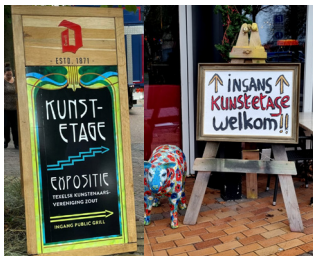 d
ESTD. 1871
KUNST-
ETAGE
EXPOSITIE
TEXELSE KUNSTENAARS-
VERENIGING ZOUT
INGANG PUBLIC GRILL
INGANS
KUNSTETAGE
welkom!!